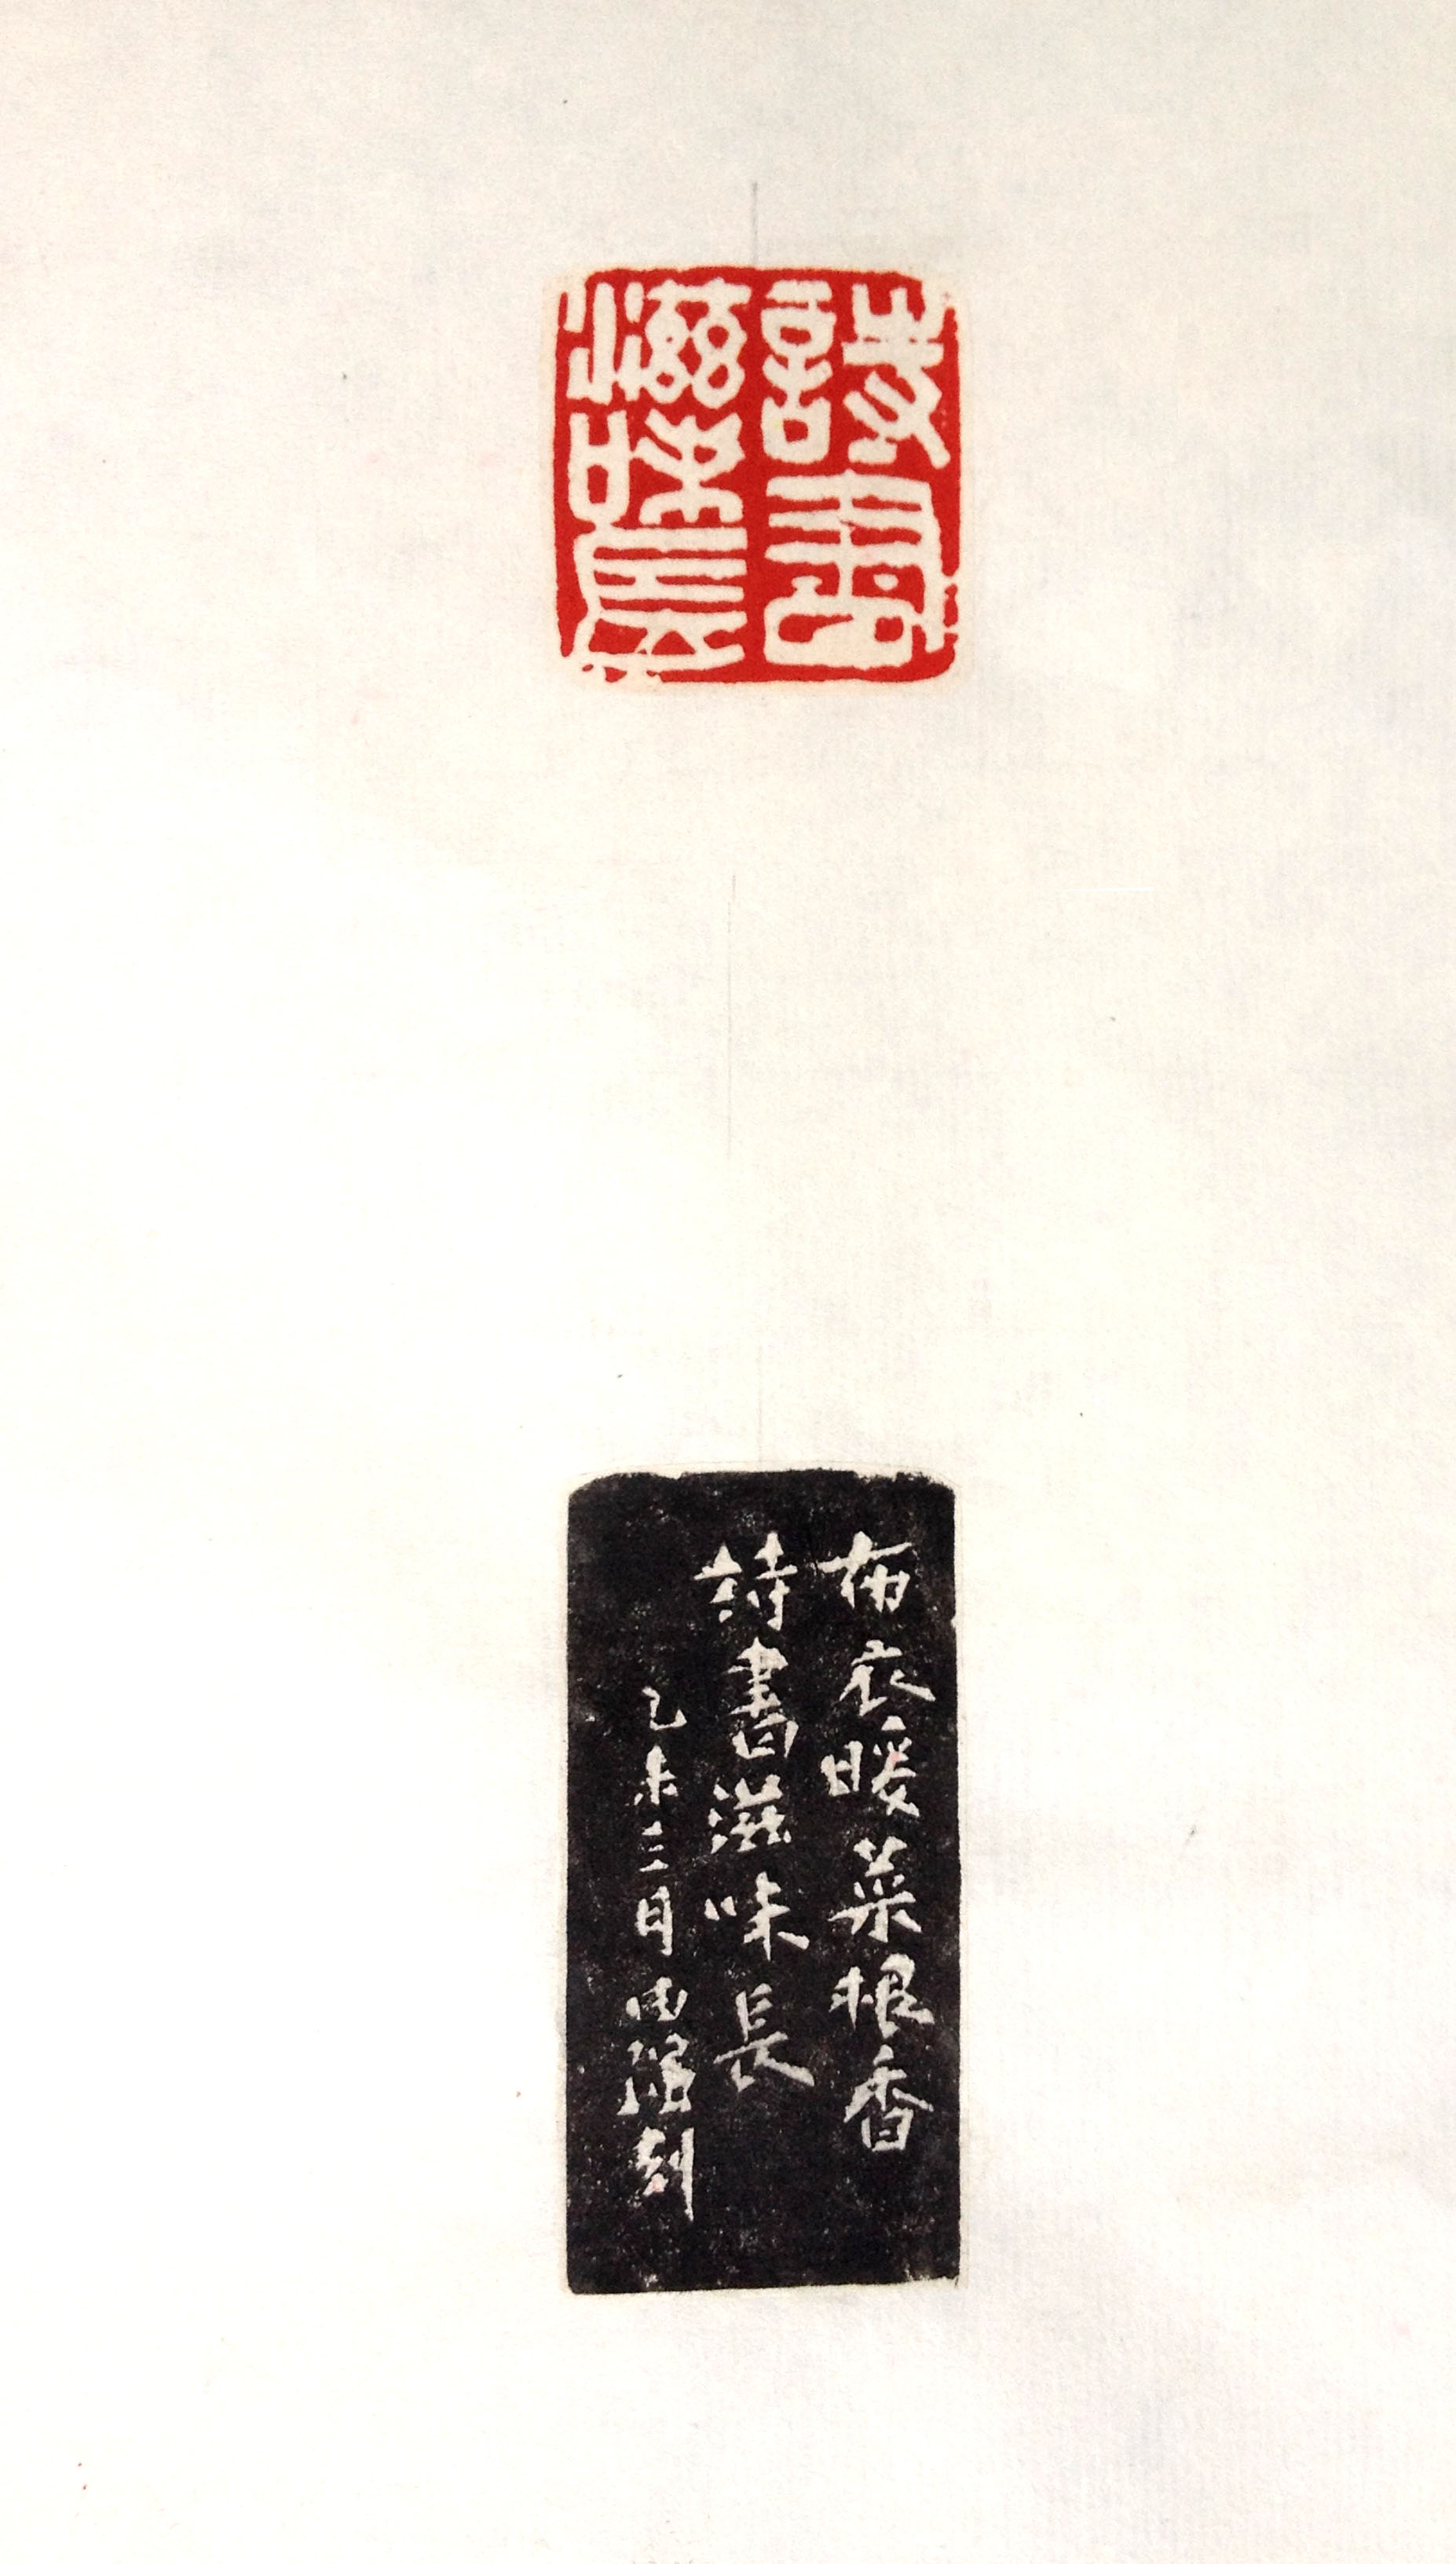 詩書
滋味長
布衣暖菜根香
詩書滋味長
乙未三月
刻